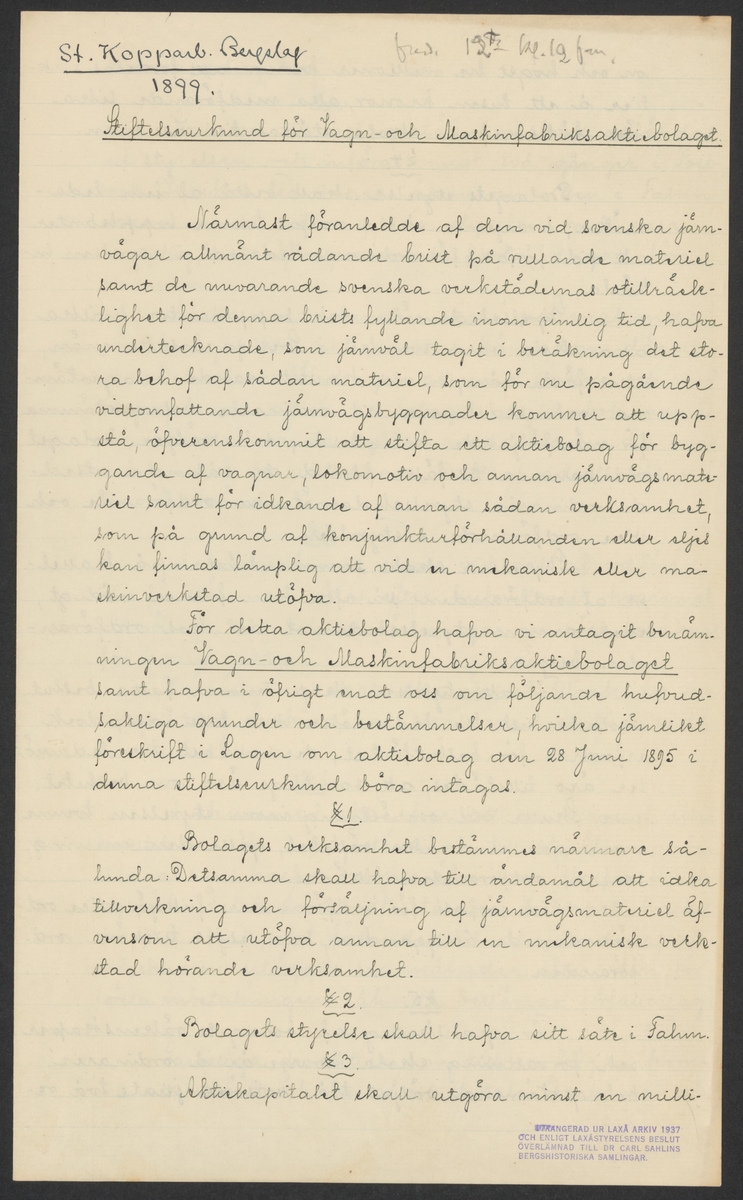 St. Kopparb. Bergslag
1899.
fred. 12 kl. 12 fm.
Stiftelseurkund för Vagn- och Maskinfabriksaktiebolaget.
Närmast föranledde af den vid svenska järn-
vägar allmänt rådande brist på rullande materiel
samt de nuvarande svenska verkstädernas otillräck-
lighet för denna brists fyllande inom rimlig tid, hafva
undertecknade, som jämväl tagit i beräkning det sto-
ra behof af sådan materiel, som för nu pågående
vidtomfattande järnvägsbyggnader kommer att upp-
stå, öfverenskommit att stifta ett aktiebolag för byg-
gande af vagnar, lokomotiv och annan järnvägsmate-
riel samt för idkande af annan sådan verksamhet,
som på grund af konjunkturförhållanden eller eljes
kan finnas lämplig att vid en mekanisk eller ma-
skinverkstad utöfva.
För detta aktiebolag hafva vi antagit benäm-
ningen Vagn- och Maskinfabriksaktiebolaget
samt hafva i öfrigt enat oss om följande hufvud-
sakliga grunder och bestämmelser, hvilka jämlikt
föreskrift i Lagen om aktiebolag den 28 Juni 1895 i
denna stiftelseurkund böra intagas.
§ 1.
Bolagets verksamhet bestämmes närmare så-
lunda: Detsamma skall hafva till ändamål att idka
tillverkning och försäljning af järnvägsmateriel äf-
vensom att utöfva annan till en mekanisk verk-
stad hörande verksamhet.
§ 2.
Bolagets styrelse skall hafva sitt säte i Falun.
§ 3
Aktiekapitalet skall utgöra minst en milli-
UTRANGERAD UR LAXÅ ARKIV 1937
OCH ENLIGT LAXÅSTYRELSENS BESLUT
ÖVERLÄMNAD TILL DR CARL SAHLINS
BERGSHISTORISKA SAMLINGAR.